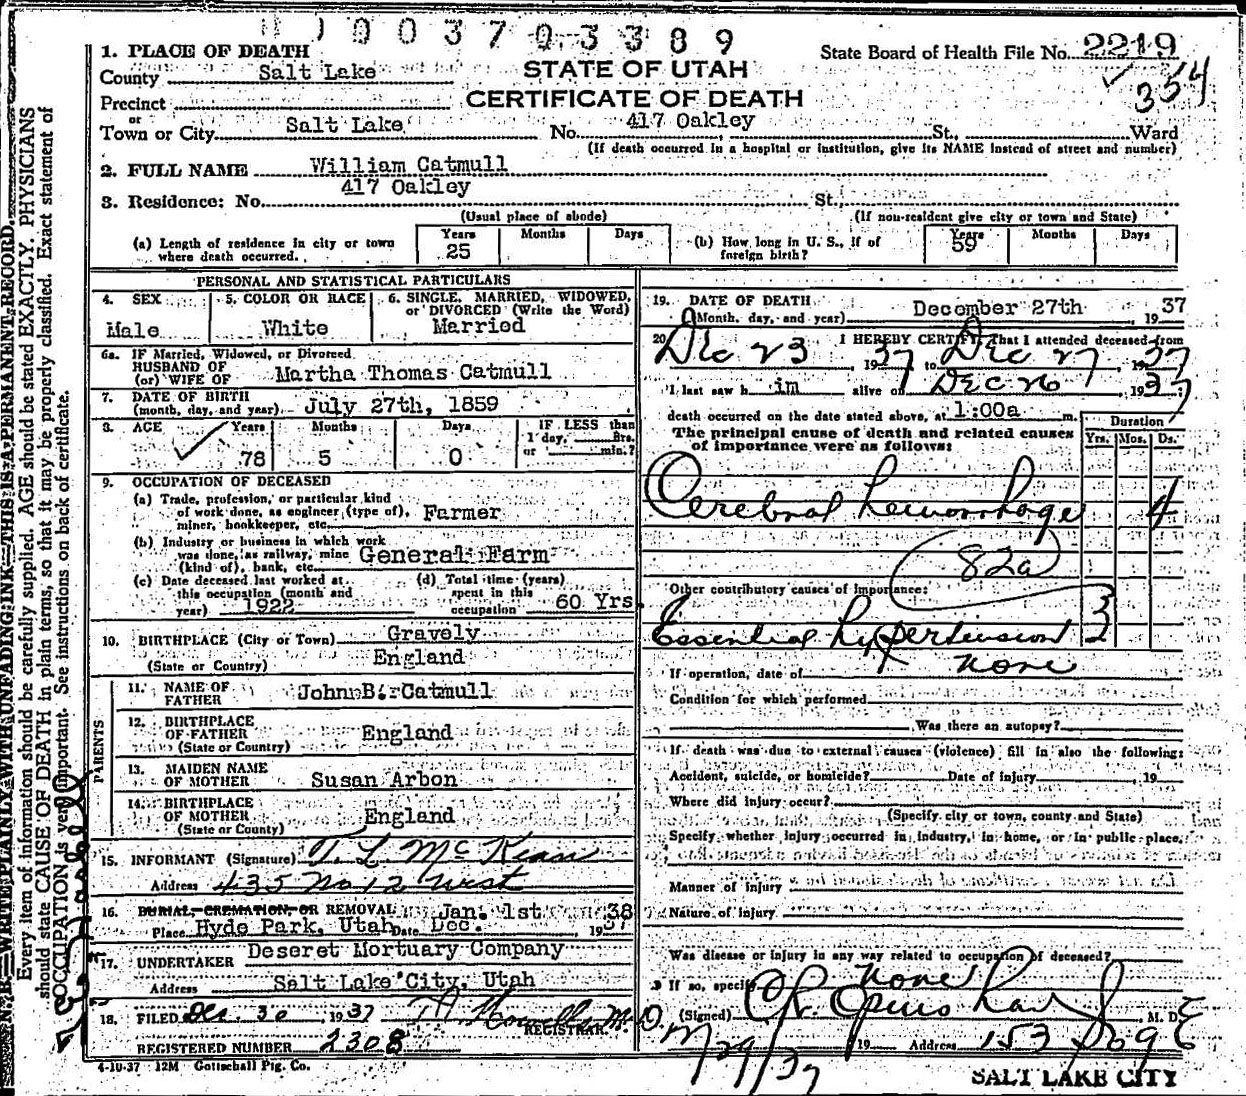 0037 03389
1. PLACE OF DEATH
County Salt Lake
State Board of Health File No. 2219
354
STATE OF UTAH
CERTIFICATE OF DEATH
Precinct
or
Town or City Salt Lake No. 417 Oakley St., Ward
(If death occurred in a hospital or institution, give its NAME instead of street and number)
2. FULL NAME William Catmull
3. Residence: No. 417 Oakley St.
(Usual place of abode) (If non-resident give city or town and State)
(a) Length of residence in city or town where death occurred. Years 25 Months Days
(b) How long in U. S., if of foreign birth? Years 59 Months Days
PERSONAL AND STATISTICAL PARTICULARS
4. SEX Male
5. COLOR OR RACE White
6. SINGLE, MARRIED, WIDOWED, or DIVORCED (Write the Word) Married
6a. IF Married, Widowed, or Divorced
HUSBAND OF
(or) WIFE OF Martha Thomas Catmull
7. DATE OF BIRTH
(month, day, and year) July 27th, 1859
8. AGE Years 78 Months 5 Days 0
IF LESS than 1 day, Hrs. or min.?
9. OCCUPATION OF DECEASED
(a) Trade, profession, or particular kind
of work done, as engineer (type of), Farmer
miner, bookkeeper, etc.
(b) Industry or business in which work
was done, as railway, mine General Farm
(kind of), bank, etc.
(c) Date deceased last worked at
this occupation (month and
year) 1922
(d) Total time (years)
spent in this
occupation 60 Yrs.
10. BIRTHPLACE (City or Town) Gravely
(State or Country) England
PARENTS
11. NAME OF
FATHER John B. Catmull
12. BIRTHPLACE
OF FATHER England
(State or Country)
13. MAIDEN NAME
OF MOTHER Susan Arbon
14. BIRTHPLACE
OF MOTHER England
(State or County)
15. INFORMANT (Signature) T. L. McKean
Address 435 No 12 West
16. BURIAL, CREMATION, OR REMOVAL Jan. 1st 38
Place Hyde Park, Utah Date Dec. , 1937
17. UNDERTAKER Deseret Mortuary Company
Address Salt Lake City, Utah
18. FILED Dec. 30 1937
REGISTRAR
REGISTERED NUMBER 2308
4-10-37 12M Gottschall Ptg. Co.
19. DATE OF DEATH
(Month, day, and year) December 27th , 1937
20. I HEREBY CERTIFY, That I attended deceased from
Dec 23 , 1937 to Dec 27 , 1937
I last saw h im alive on Dec 26 , 1937
death occurred on the date stated above, at 1:00a m.
The principal cause of death and related causes
of importance were as follows:
Duration
Yrs. Mos. Ds.
Cerebral hemorrhage 4
82a
Other contributory causes of importance:
Essential hypertension 3
If operation, date of none
Condition for which performed
Was there an autopsy?
If death was due to external causes (violence) fill in also the following:
Accident, suicide, or homicide? Date of injury , 19
Where did injury occur?
(Specify city or town, county and State)
Specify whether injury occurred in industry, in home, or in public place.
Manner of injury
Nature of injury
Was disease or injury in any way related to occupation of deceased?
If so, specify none
(Signed) M. D.
19 Address 153
SALT LAKE CITY
N. B.—WRITE PLAINLY WITH UNFADING INK—THIS IS A PERMANENT RECORD.
Every item of information should be carefully supplied. AGE should be stated EXACTLY. PHYSICIANS
should state CAUSE OF DEATH in plain terms, so that it may be properly classified. Exact statement of
OCCUPATION is very important. See instructions on back of certificate.